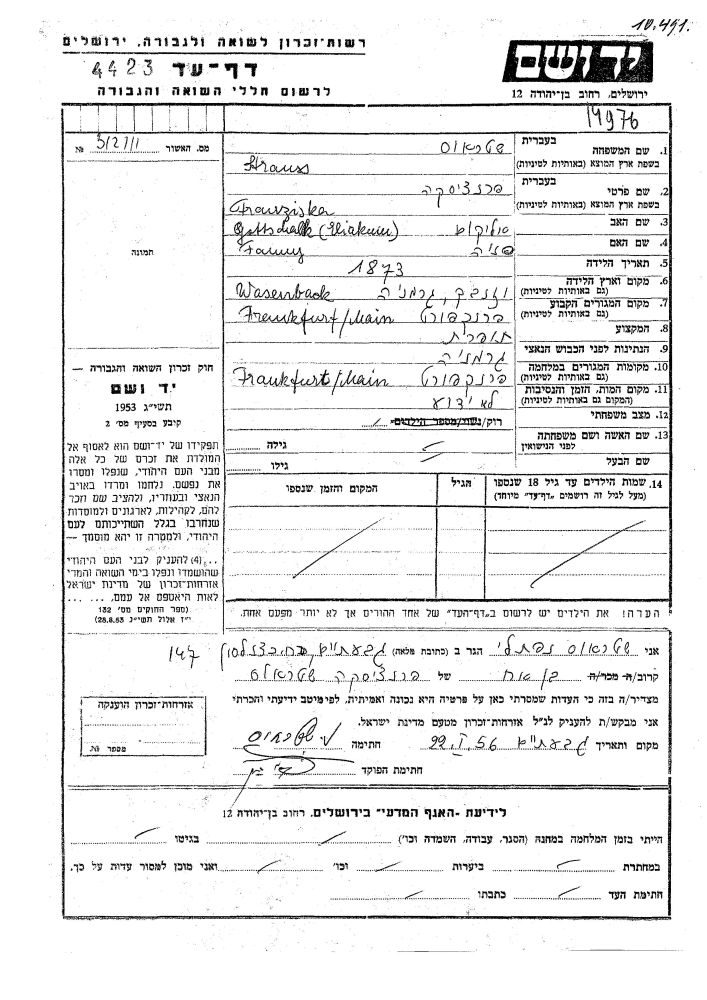 10.491.
רשות-זכרון לשואה ולגבורה, ירושלים
יד ושם
דף-עד 4423
לרשום חללי השואה והגבורה
ירושלים, רחוב בן-יהודה 12
14976
מס. האשור
№
1. שם המשפחה
בעברית
שטראוס
בשפת ארץ המוצא (באותיות לטיניות)
Strauss
2. שם פרטי
בעברית
פרנציסקה
בשפת ארץ המוצא (באותיות לטיניות)
Franziska
3. שם האב
Gottschalk (Eliakum)
4. שם האם
פניה
Fanny
5. תאריך הלידה
1873
6. מקום וארץ הלידה
(גם באותיות לטיניות)
גרמניה
Wasenbach
7. מקום המגורים הקבוע
(גם באותיות לטיניות)
פרנקפורט
Frankfurt/Main
8. המקצוע
תופרת
9. הנתינות לפני הכבוש הנאצי
גרמניה
10. מקומות המגורים במלחמה
(גם באותיות לטיניות)
פרנקפורט
Frankfurt/Main
11. מקום המות, הזמן והנסיבות
(המקום גם באותיות לטיניות)
לא ידוע
12. מצב משפחתי
רוק/נשוי/מספר הילדים
13. שם האשה ושם משפחתה
לפני הנישואין
גילה
שם הבעל
גילו
14. שמות הילדים עד גיל 18 שנספו
(מעל לגיל זה רושמים „דף-עד" מיוחד)
הגיל
המקום והזמן שנספו
תמונה
חוק זכרון השואה והגבורה —
יד ושם
תשי"ג 1953
קובע בסעיף מס' 2
תפקידו של יד-ושם הוא לאסוף אל
המולדת את זכרם של כל אלה
מבני העם היהודי, שנפלו ומסרו
את נפשם, נלחמו ומרדו באויב
הנאצי ובעוזריו, ולהציב שם וזכר
להם, לקהילות, לארגונים ולמוסדות
שנחרבו בגלל השתייכותם לעם
היהודי, ולמטרה זו יהא מוסמך —
...(4) להעניק לבני העם היהודי
שהושמדו ונפלו בימי השואה והמרי
אזרחות-זכרון של מדינת ישראל
לאות היאספם אל עמם, ...
(ספר החוקים מס' 132
י"ז אלול תשי"ג 28.8.53)
הערה! את הילדים יש לרשום ב„דף-העד" של אחד ההורים אך לא יותר מפעם אחת.
אני שטראוס נפתלי הגר ב (כתובת מלאה) גבעתיים 147
קרוב/ה מכר/ה בן אח של פרנציסקה שטראוס
מצהיר/ה בזה כי העדות שמסרתי כאן על פרטיה היא נכונה ואמיתית, לפי מיטב ידיעתי והכרתי
אני מבקש/ת להעניק לנ"ל אזרחות-זכרון מטעם מדינת ישראל.
מקום ותאריך גבעתיים 22.I.56 חתימה
חתימת הפוקד
אזרחות-זכרון הוענקה
מספר №
לידיעת „האגף המדעי" בירושלים, רחוב בן-יהודה 12
הייתי בזמן המלחמה במחנה (הסגר, עבודה, השמדה וכו') בגיטו
במחתרת ביערות וכו' ואני מוכן למסור עדות על כך.
חתימת העד כתבתו